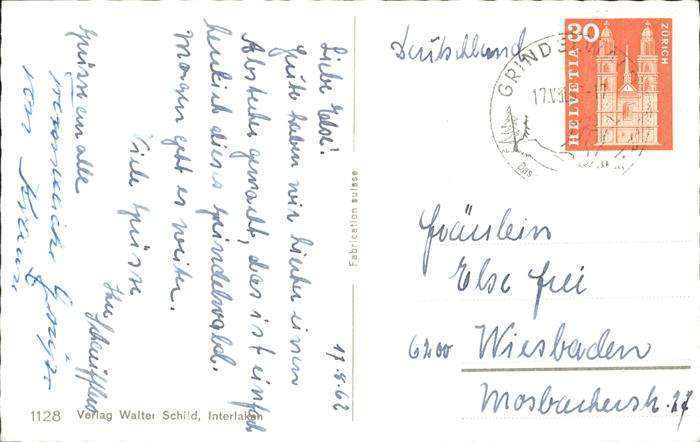 17.8.62
Liebe Else!
Heute haben wir hierher einen
Abstecher gemacht, das ist einfach
herrlich dieses Grindelwald.
Morgen geht es weiter.
Viele Grüsse
Ihre
Grüsse an alle
von
Fabrication suisse
1128 Verlag Walter Schild, Interlaken
Deutschland
GRINDELWALD
17.VIII
Das
30
HELVETIA
ZÜRICH
Fräulein
Else Frei
6200 Wiesbaden
Mosbacherstr. 27